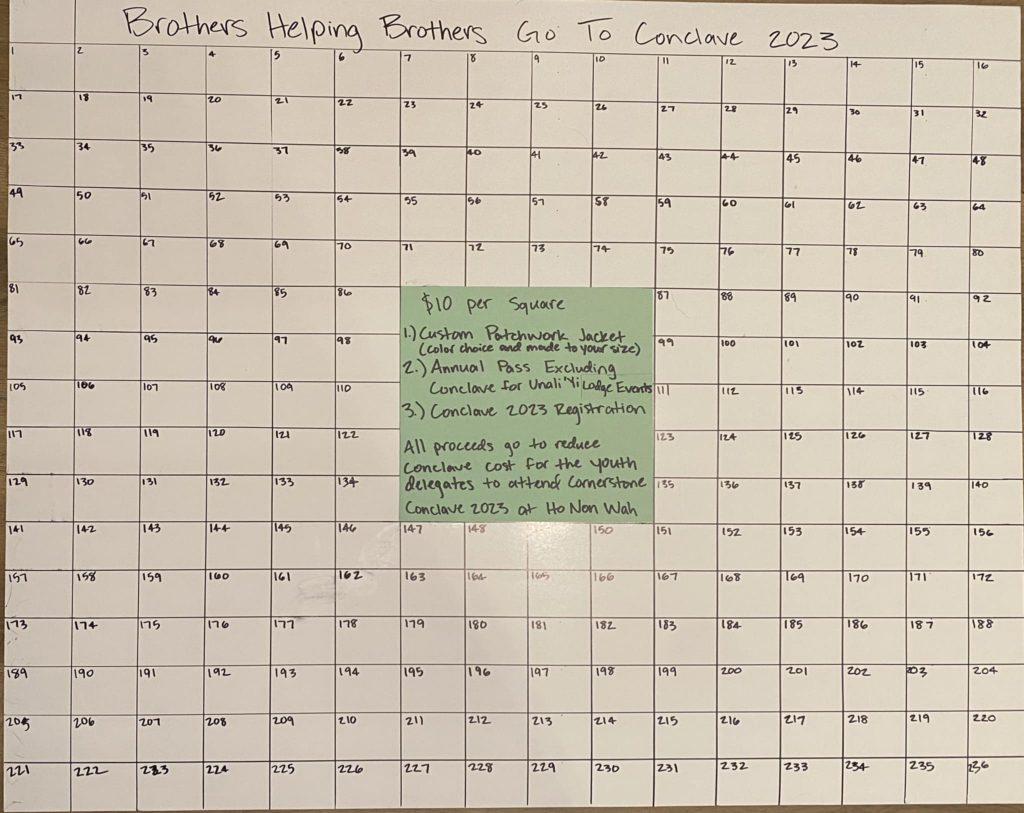 Brothers Helping Brothers Go To Conclave 2023
1 2 3 4 5 6 7 8 9 10 11 12 13 14 15 16
17 18 19 20 21 22 23 24 25 26 27 28 29 30 31 32
33 34 35 36 37 38 39 40 41 42 43 44 45 46 47 48
49 50 51 52 53 54 55 56 57 58 59 60 61 62 63 64
65 66 67 68 69 70 71 72 73 74 75 76 77 78 79 80
81 82 83 84 85 86 87 88 89 90 91 92
93 94 95 96 97 98 99 100 101 102 103 104
105 106 107 108 109 110 111 112 113 114 115 116
117 118 119 120 121 122 123 124 125 126 127 128
129 130 131 132 133 134 135 136 137 138 139 140
$10 per Square
1.) Custom Patchwork Jacket
(color choice and made to your size)
2.) Annual Pass Excluding
Conclave for Unali'Yi Lodge Events
3.) Conclave 2023 Registration
All proceeds go to reduce
Conclave cost for the youth
delegates to attend Cornerstone
Conclave 2023 at Ho Non Wah
141 142 143 144 145 146 147 148 150 151 152 153 154 155 156
157 158 159 160 161 162 163 164 165 166 167 168 169 170 171 172
173 174 175 176 177 178 179 180 181 182 183 184 185 186 187 188
189 190 191 192 193 194 195 196 197 198 199 200 201 202 203 204
205 206 207 208 209 210 211 212 213 214 215 216 217 218 219 220
221 222 223 224 225 226 227 228 229 230 231 232 233 234 235 236